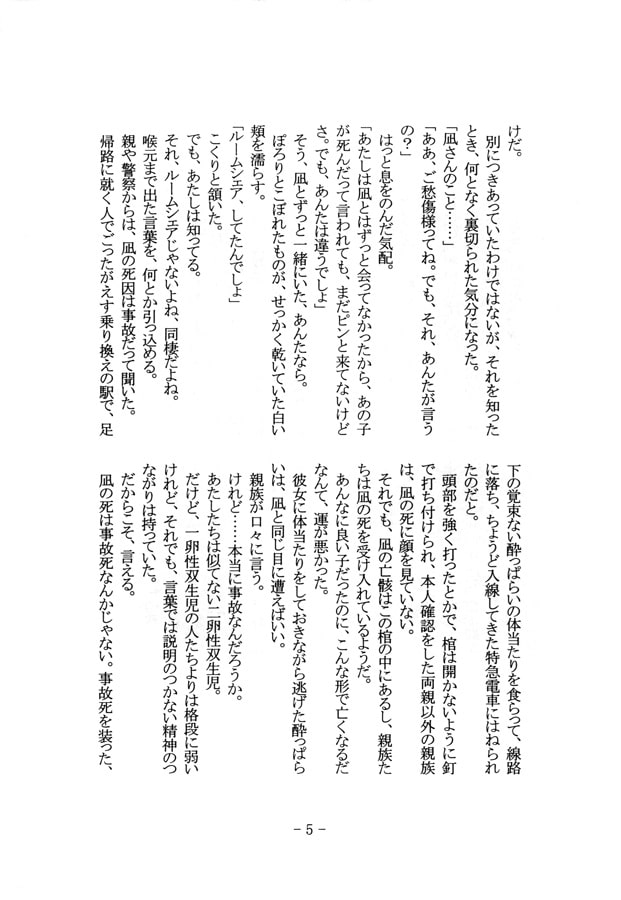 けだ。
　別につきあっていたわけではないが、それを知った
とき、何となく裏切られた気分になった。
「凪さんのこと……」
「ああ、ご愁傷様ってね。でも、それ、あんたが言う
の？」
　はっと息をのんだ気配。
「あたしは凪とはずっと会ってなかったから、あの子
が死んだって言われても、まだピンと来てないけど
さ。でも、あんたは違うでしょ」
　そう、凪とずっと一緒にいた、あんたなら。
　ぽろりとこぼれたものが、せっかく乾いていた白い
頬を濡らす。
「ルームシェア、してたんでしょ」
　こくりと頷いた。
　でも、あたしは知ってる。
　それ、ルームシェアじゃないよね、同棲だよね。
　喉元まで出た言葉を、何とか引っ込める。
　親や警察からは、凪の死因は事故だって聞いた。
　帰路に就く人でごったがえす乗り換えの駅で、足
下の覚束ない酔っぱらいの体当たりを食らって、線路
に落ち、ちょうど入線してきた特急電車にはねられ
たのだと。
　頭部を強く打ったとかで、棺は開かないように釘
で打ち付けられ、本人確認をした両親以外の親族
は、凪の死に顔を見ていない。
　それでも、凪の亡骸はこの棺の中にあるし、親族た
ちは凪の死を受け入れているようだ。
　あんなに良い子だったのに、こんな形で亡くなるだ
なんて、運が悪かった。
　彼女に体当たりをしておきながら逃げた酔っぱら
いは、凪と同じ目に遭えばいい。
　親族が口々に言う。
　けれど……本当に事故なんだろうか。
　あたしたちは似てない二卵性双生児。
　だけど、一卵性双生児の人たちよりは格段に弱い
けれど、それでも、言葉では説明のつかない精神のつ
ながりは持っていた。
　だからこそ、言える。
　凪の死は事故死なんかじゃない。事故死を装った、
- 5 -